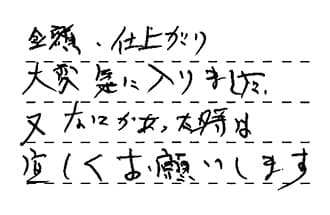 金額、仕上がり
大変気に入りました。
又なにかあった時は
宜しくお願いします